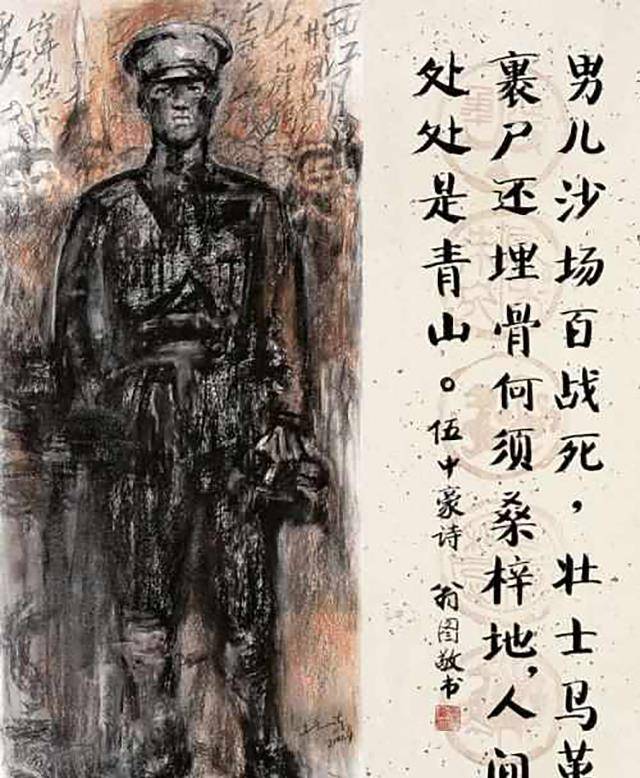 男儿沙场百战死，壮士马革
裹尸还埋骨何须桑梓地，人间
处处是青山。
伍中豪诗 翁图敬书
西江月
井冈山